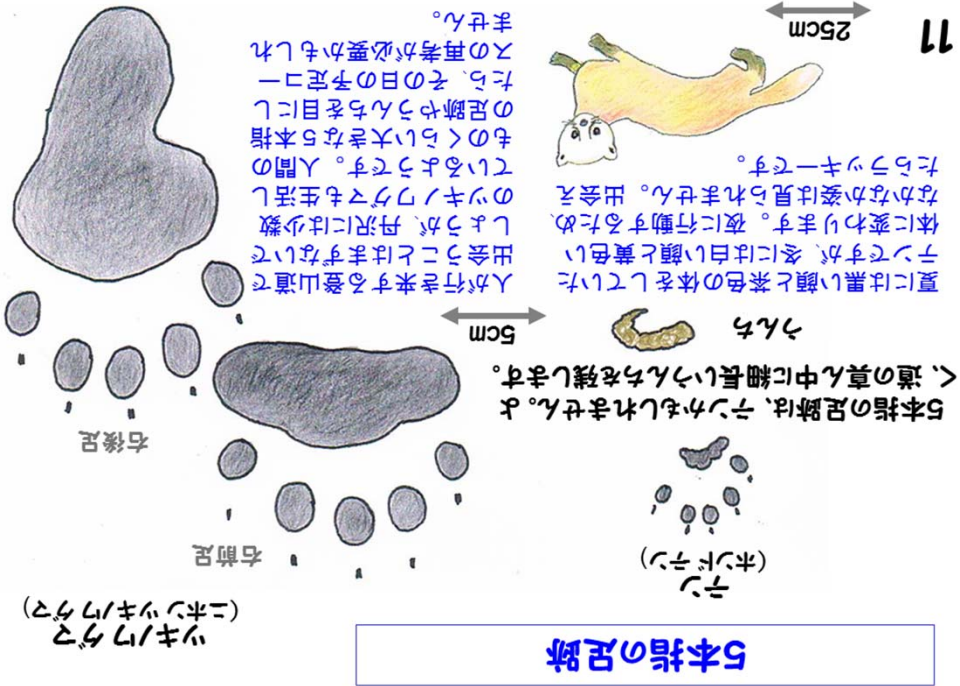 5本指の足跡
テン
(ホンドテン)
5本指の足跡は、テンかもしれません。よ
く、道の真ん中に細長いうんちを残します。
うんち
夏には黒い顔と茶色の体をしていた
テンですが、冬には白い顔と黄色い
体に変わります。夜に行動するため、
なかなか姿は見られません。出会え
たらラッキーです。
25cm
ツキノワグマ
(ニホンツキノワグマ)
右前足
右後足
5cm
人が行き来する登山道で
出会うことはまずないで
しょうが、丹沢には少数
のツキノワグマも生活し
ているようです。人間の
ものくらい大きな5本指
の足跡やうんちを目にし
たら、その日の予定コー
スの再考が必要かもしれ
ません。
11